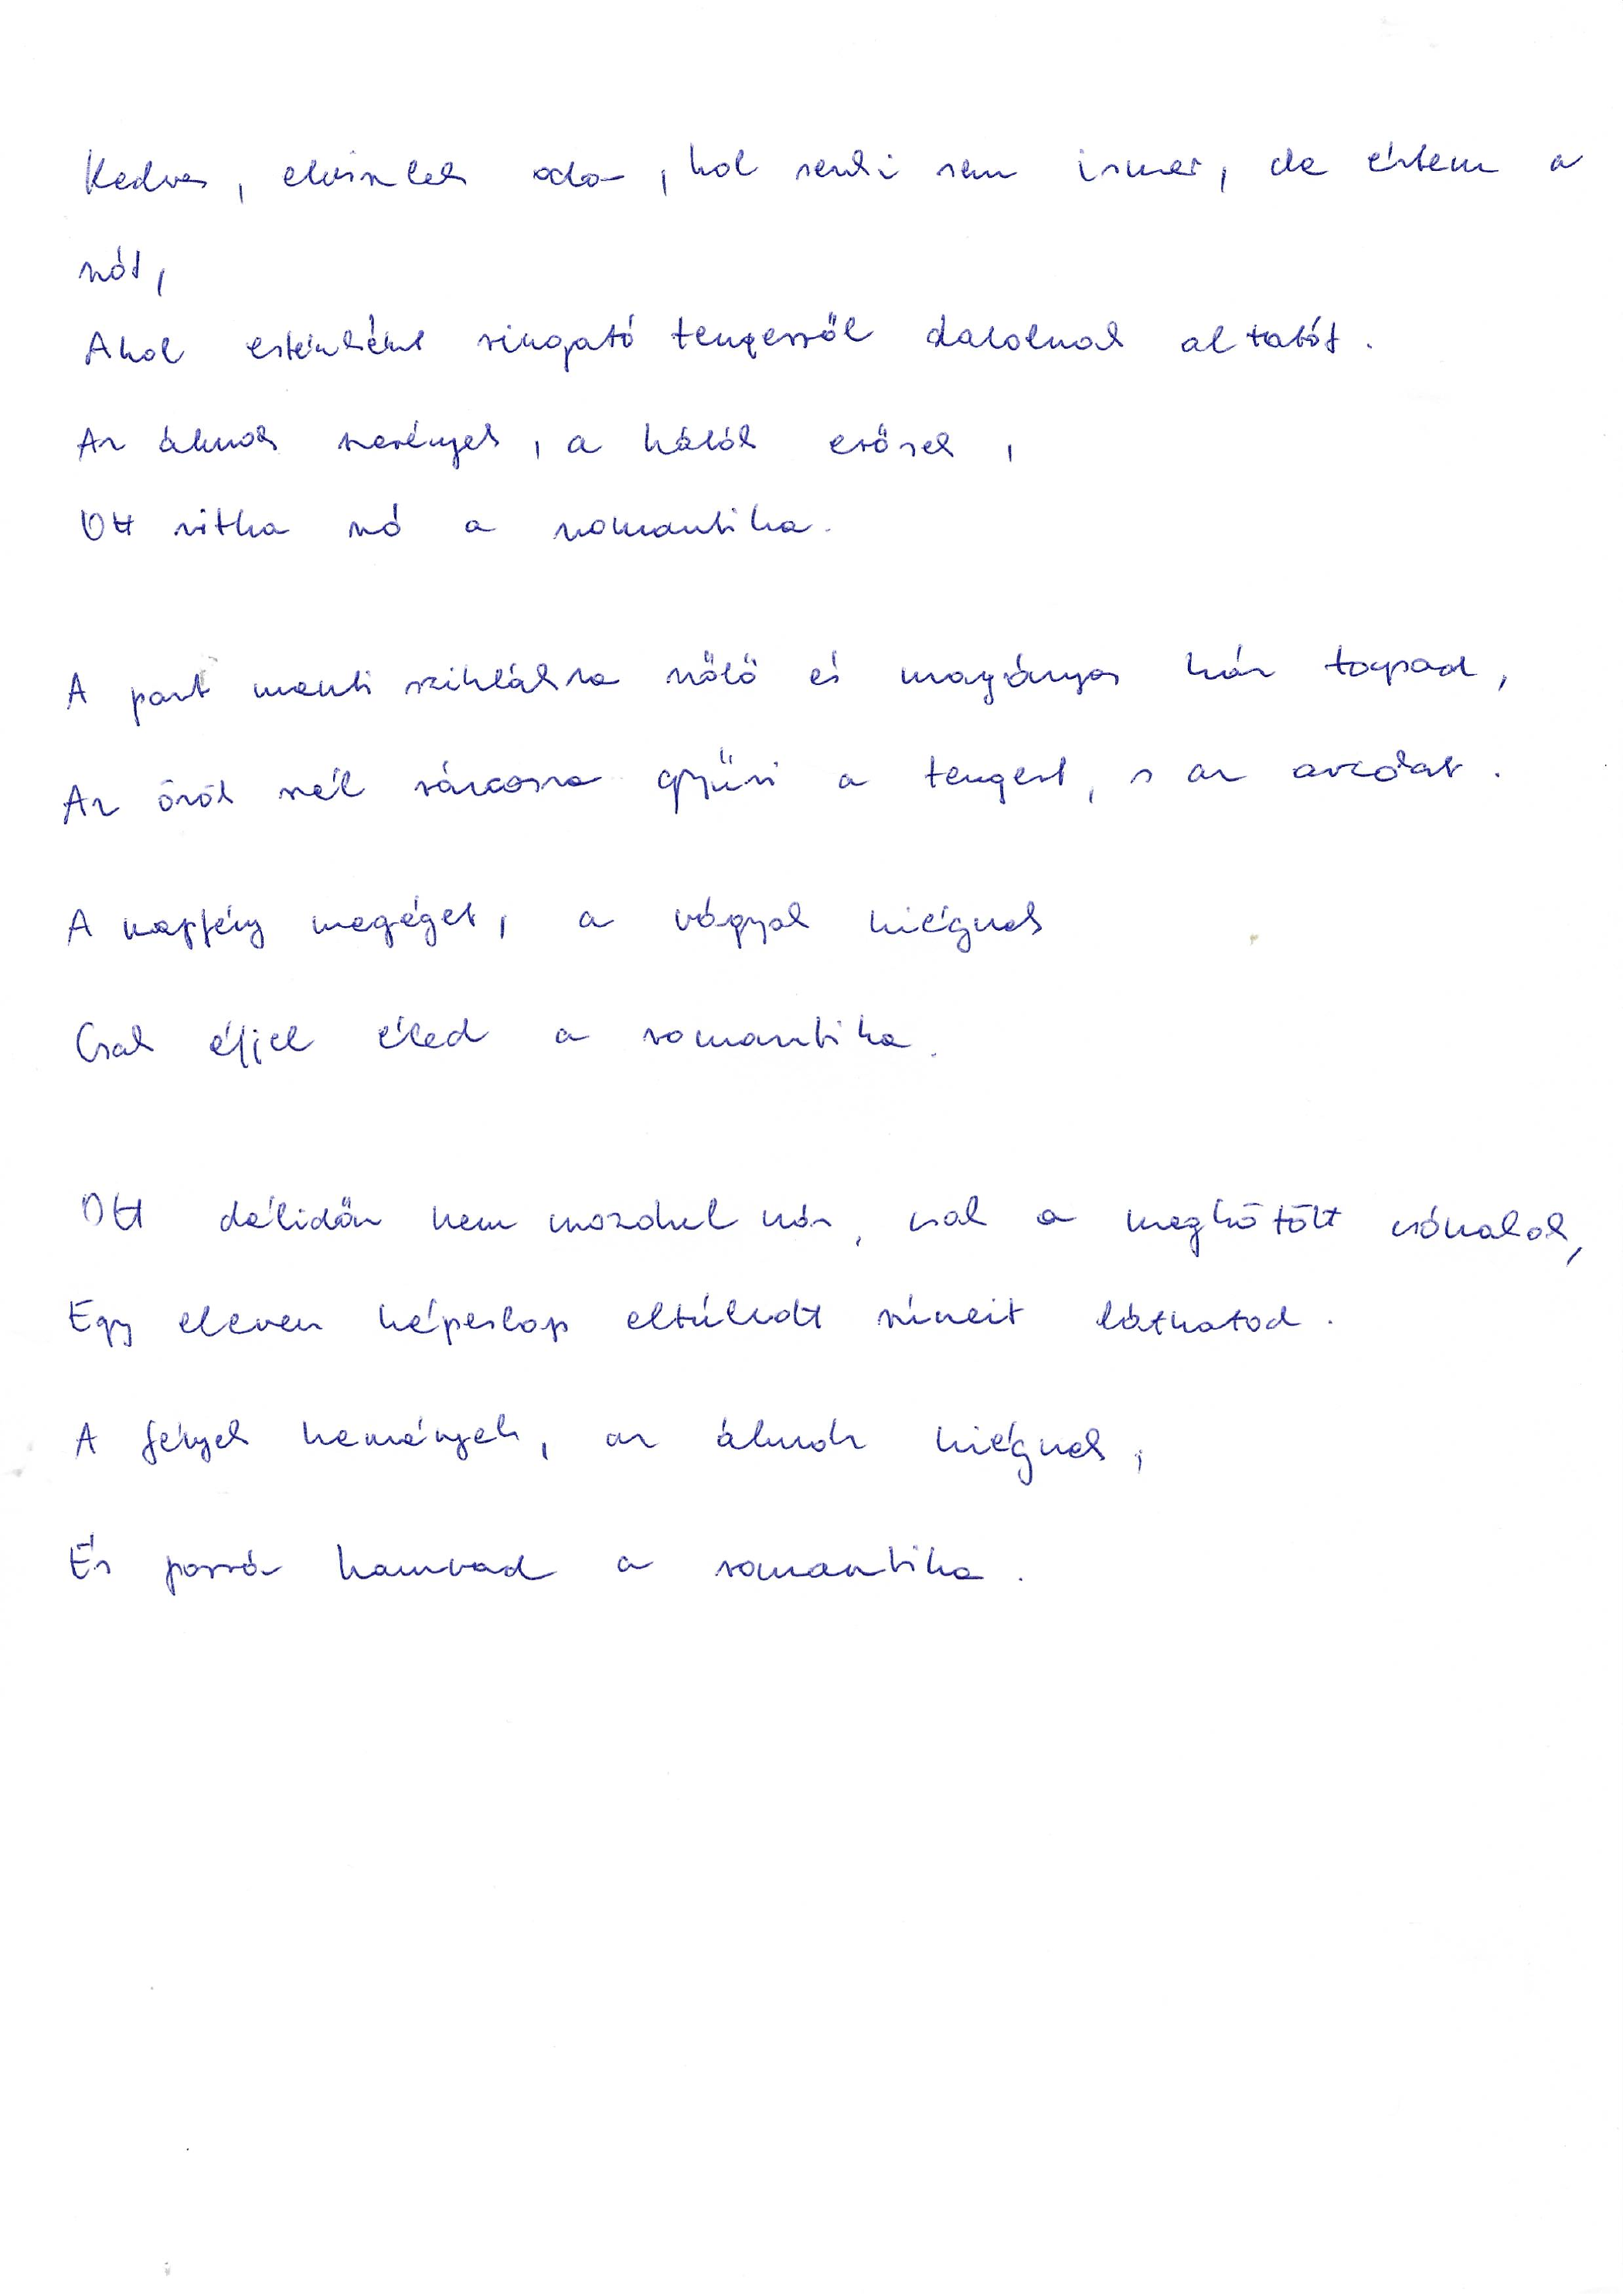 Kedves, elviszlek oda, hol senki sem ismer, de értem a
szót,
Ahol esténként ringató tengerről dalolnak altatót.
Az álmok szerények, a hálók erősek,
Ott ritka szó a romantika.
A part menti sziklákra szőlő és magányos ház tapad,
Az örök szél ráncosra gyűri a tengert, s az arcodat.
A napfény megéget, a vágyak kiégnek
Csak éjjel éled a romantika.
Ott délidőn nem mozdul más, csak a megkötött csónakok,
Egy eleven képeslap eltúlzott színeit láthatod.
A fények kemények, az álmok kiégnek,
És porrá hamvad a romantika.